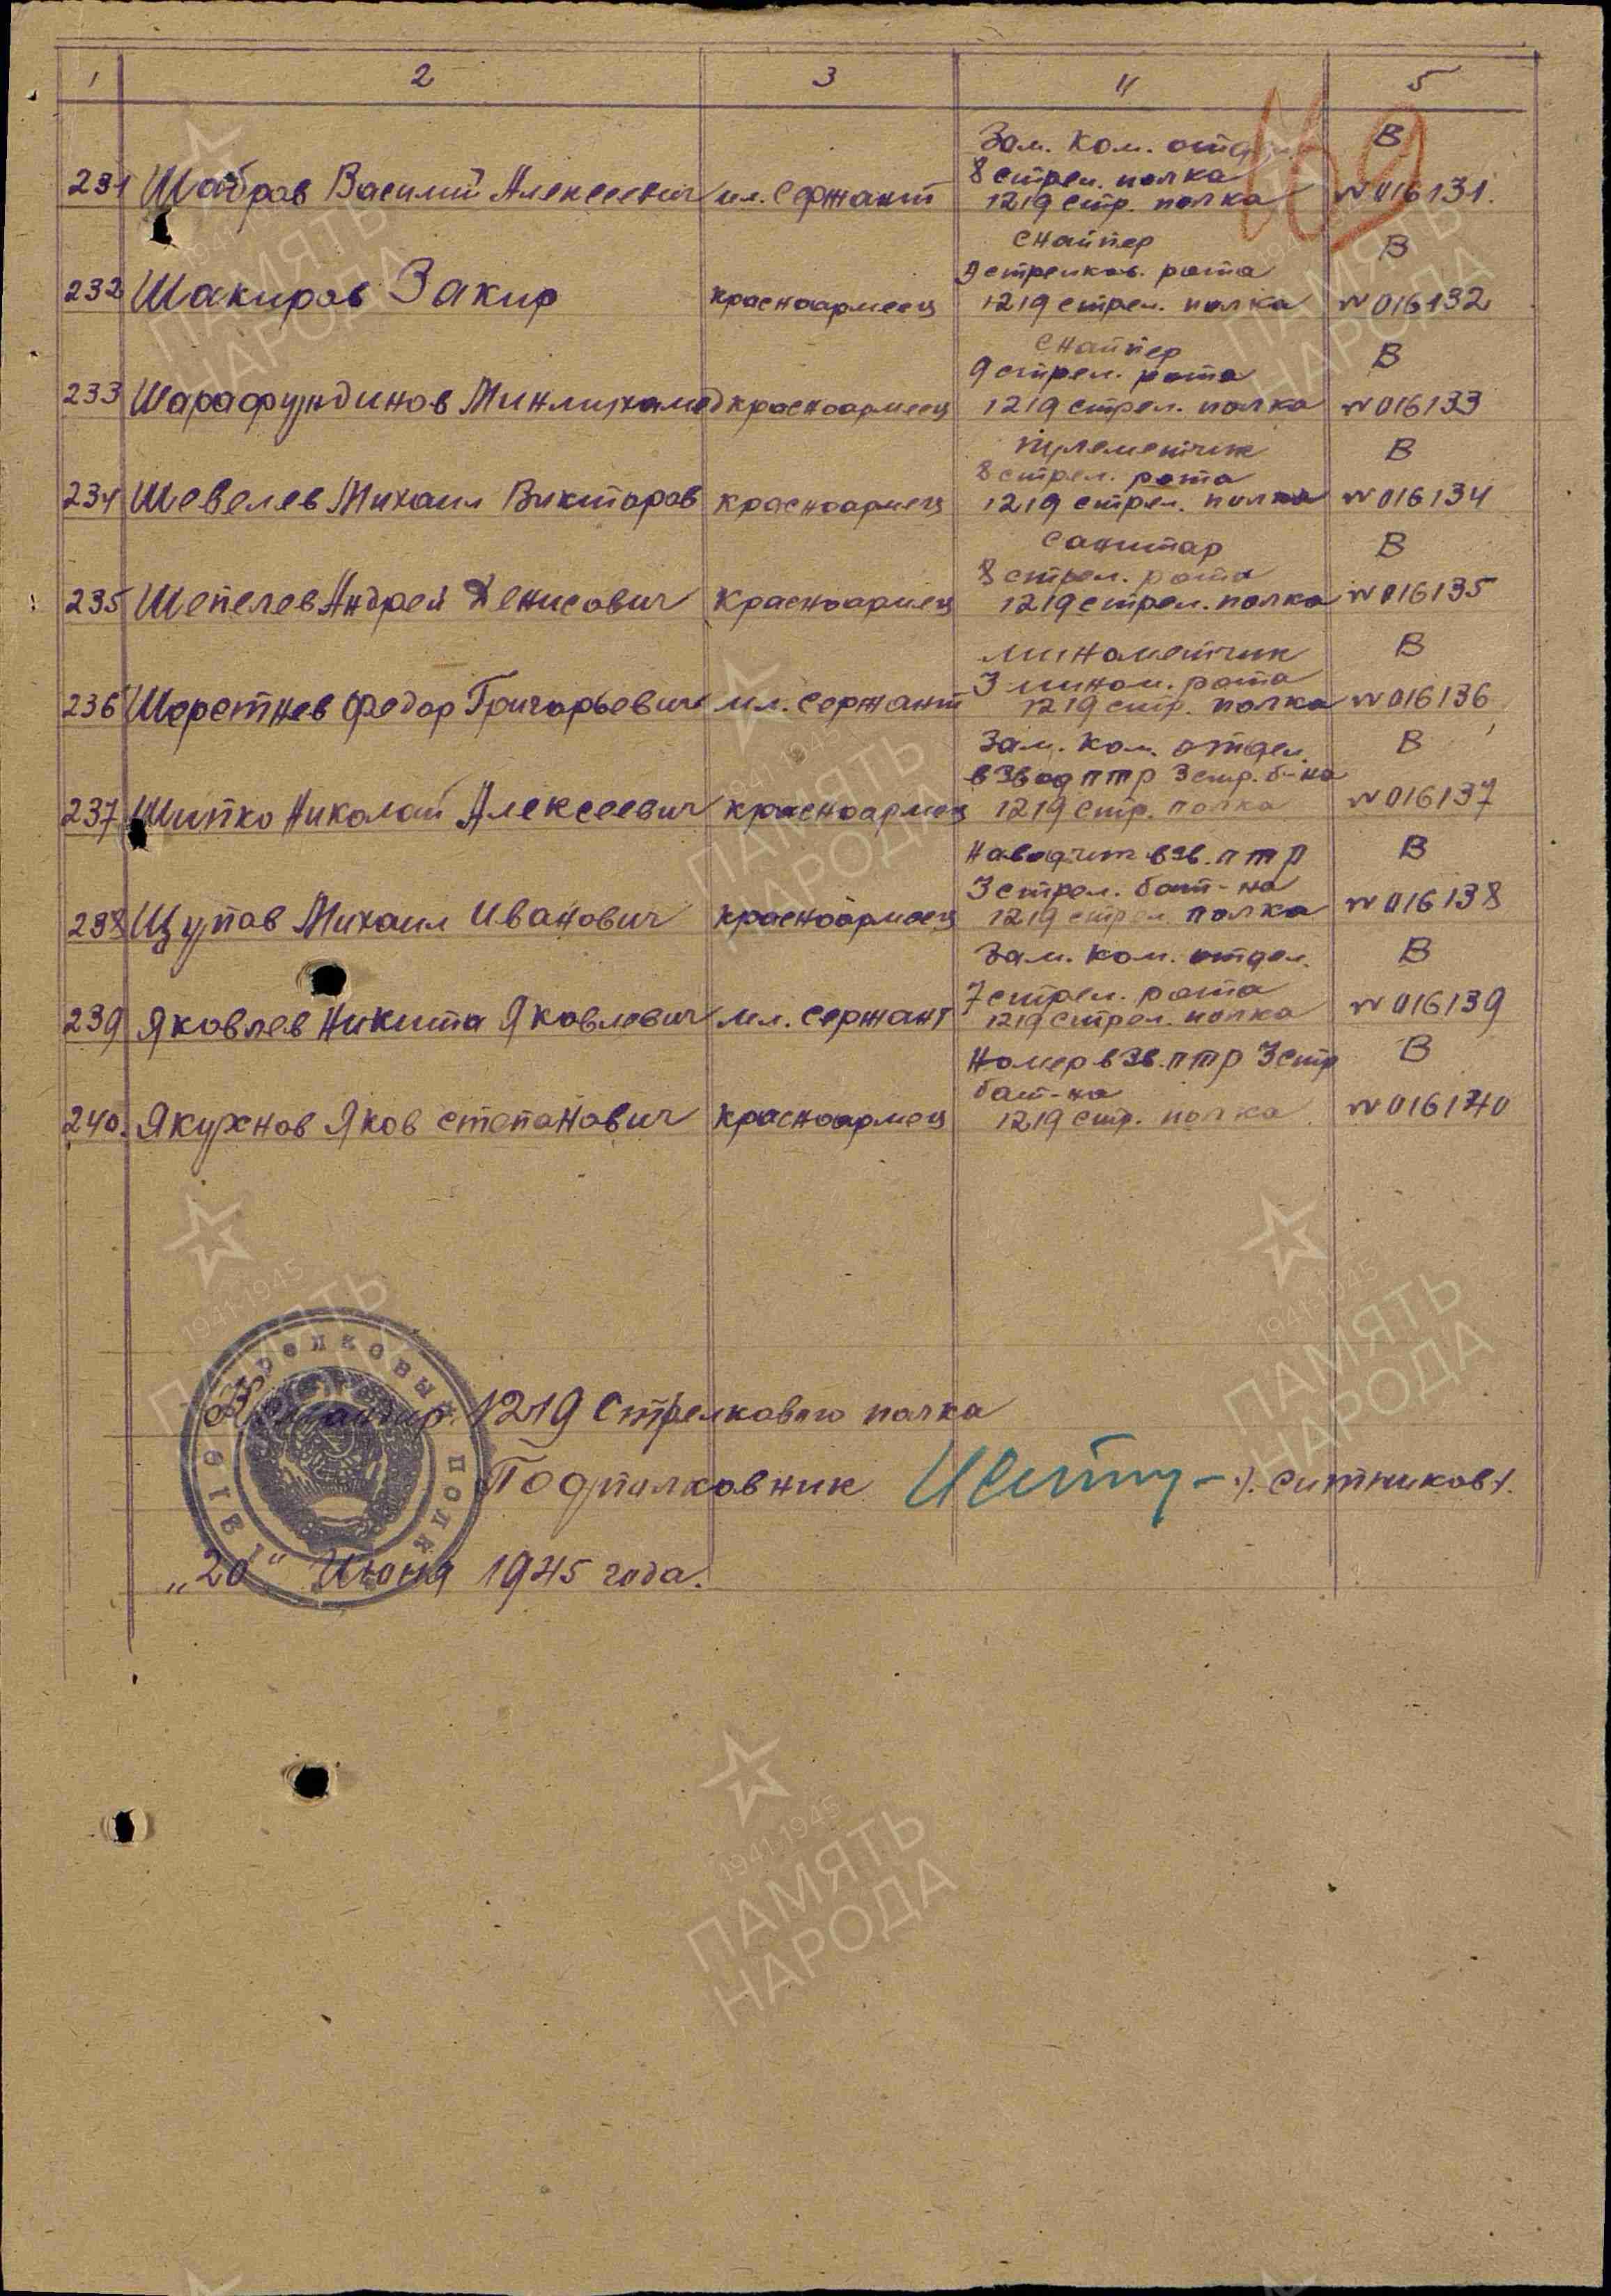 1 2 3 4 5
169
Зам. Ком. отдел. В
8 стрел. полка
231 Шабров Василий Алексеевич мл. Сержант 1219 стр. полка № 016131.
Снайпер В
9 стрелков. рота
232 Шакиров Закир красноармеец 1219 стрел. полка № 016132
Снайпер В
9 стрел. рота
233 Шарафундинов Минлихамед красноармеец 1219 стрел. полка № 016133
пулеметчик В
8 стрел. рота
234 Шевелев Михаил Викторов красноармеец 1219 стрел. полка № 016134
Санитар В
8 стрел. рота
235 Шепелев Андрей Денисович Красноармеец 1219 стрел. полка № 016135
минометчик В
3 мином. рота
236 Шерстнев Федор Григорьевич мл. Сержант 1219 стр. полка № 016136
Зам. Ком. отдел. В
взвод птр 3 стр. б-на
237 Шипко Николай Алексеевич красноармеец 1219 стр. полка № 016137
Наводчик взв. птр В
3 стрел. бат-на
238 Щупов Михаил Иванович красноармеец 1219 стрел. полка № 016138
Зам. Ком. отдел. В
7 стрел. рота
239 Яковлев Никита Яковлевич мл. Сержант 1219 стрел. полка № 016139
Номер взв. птр 3 стр В
бат-на
240. Якухнов Яков Степанович Красноармеец 1219 стр. полка № 016140
Командир 1219 Стрелкового полка
Подполковник /. Ситников /.
„20" Июня 1945 года.
стрелковый полк
1941-1945
ПАМЯТЬ
НАРОДА